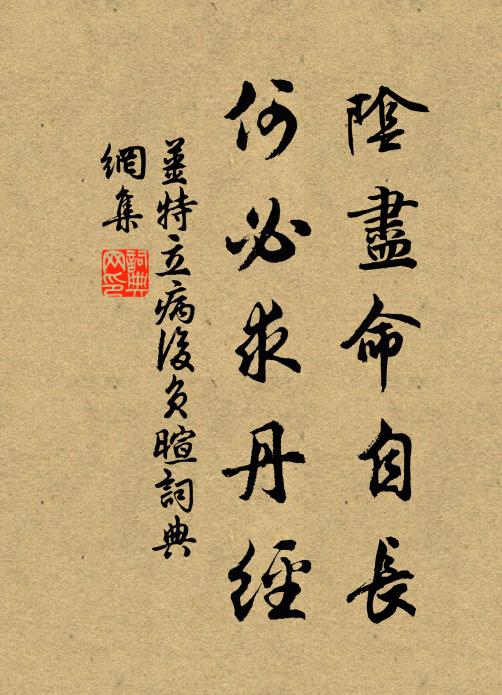 陰盡命自長
何必求丹經
姜特立病後負暄詞典
網集
詞典網印